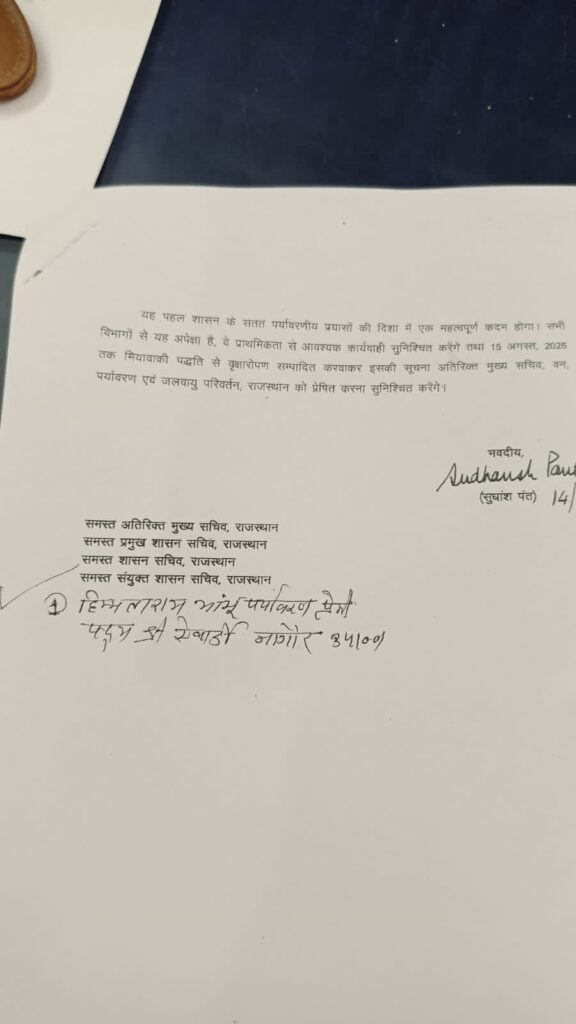 यह पहल शासन के सतत पर्यावरणीय प्रयासों की दिशा में एक महत्वपूर्ण कदम होगा। सभी
विभागों से यह अपेक्षा है, वे प्राथमिकता से आवश्यक कार्यवाही सुनिश्चित करेंगे तथा 15 अगस्त, 2025
तक मियावाकी पद्धति से वृक्षारोपण सम्पादित करवाकर इसकी सूचना अतिरिक्त मुख्य सचिव, वन,
पर्यावरण एवं जलवायु परिवर्तन, राजस्थान को प्रेषित करना सुनिश्चित करेंगे।
भवदीय,
Sudhansh Pant
(सुधांश पंत) 14/
समस्त अतिरिक्त मुख्य सचिव, राजस्थान
समस्त प्रमुख शासन सचिव, राजस्थान
समस्त शासन सचिव, राजस्थान
समस्त संयुक्त शासन सचिव, राजस्थान
1 हिम्मताराम भांभू पर्यावरण प्रेमी
पद्म श्री नागौर